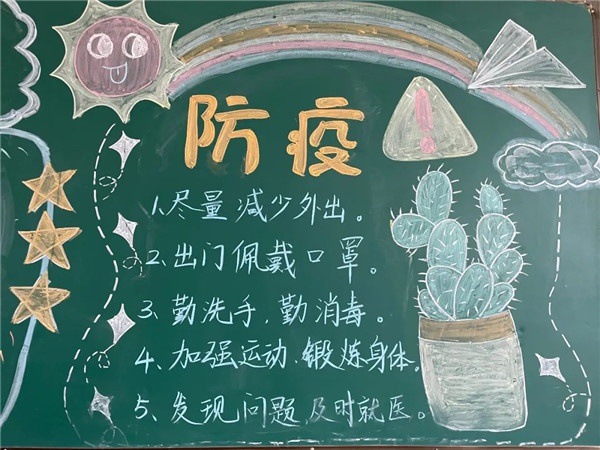 防疫
!
1、尽量减少外出。
2、出门佩戴口罩。
3、勤洗手，勤消毒。
4、加强运动、锻炼身体。
5、发现问题及时就医。